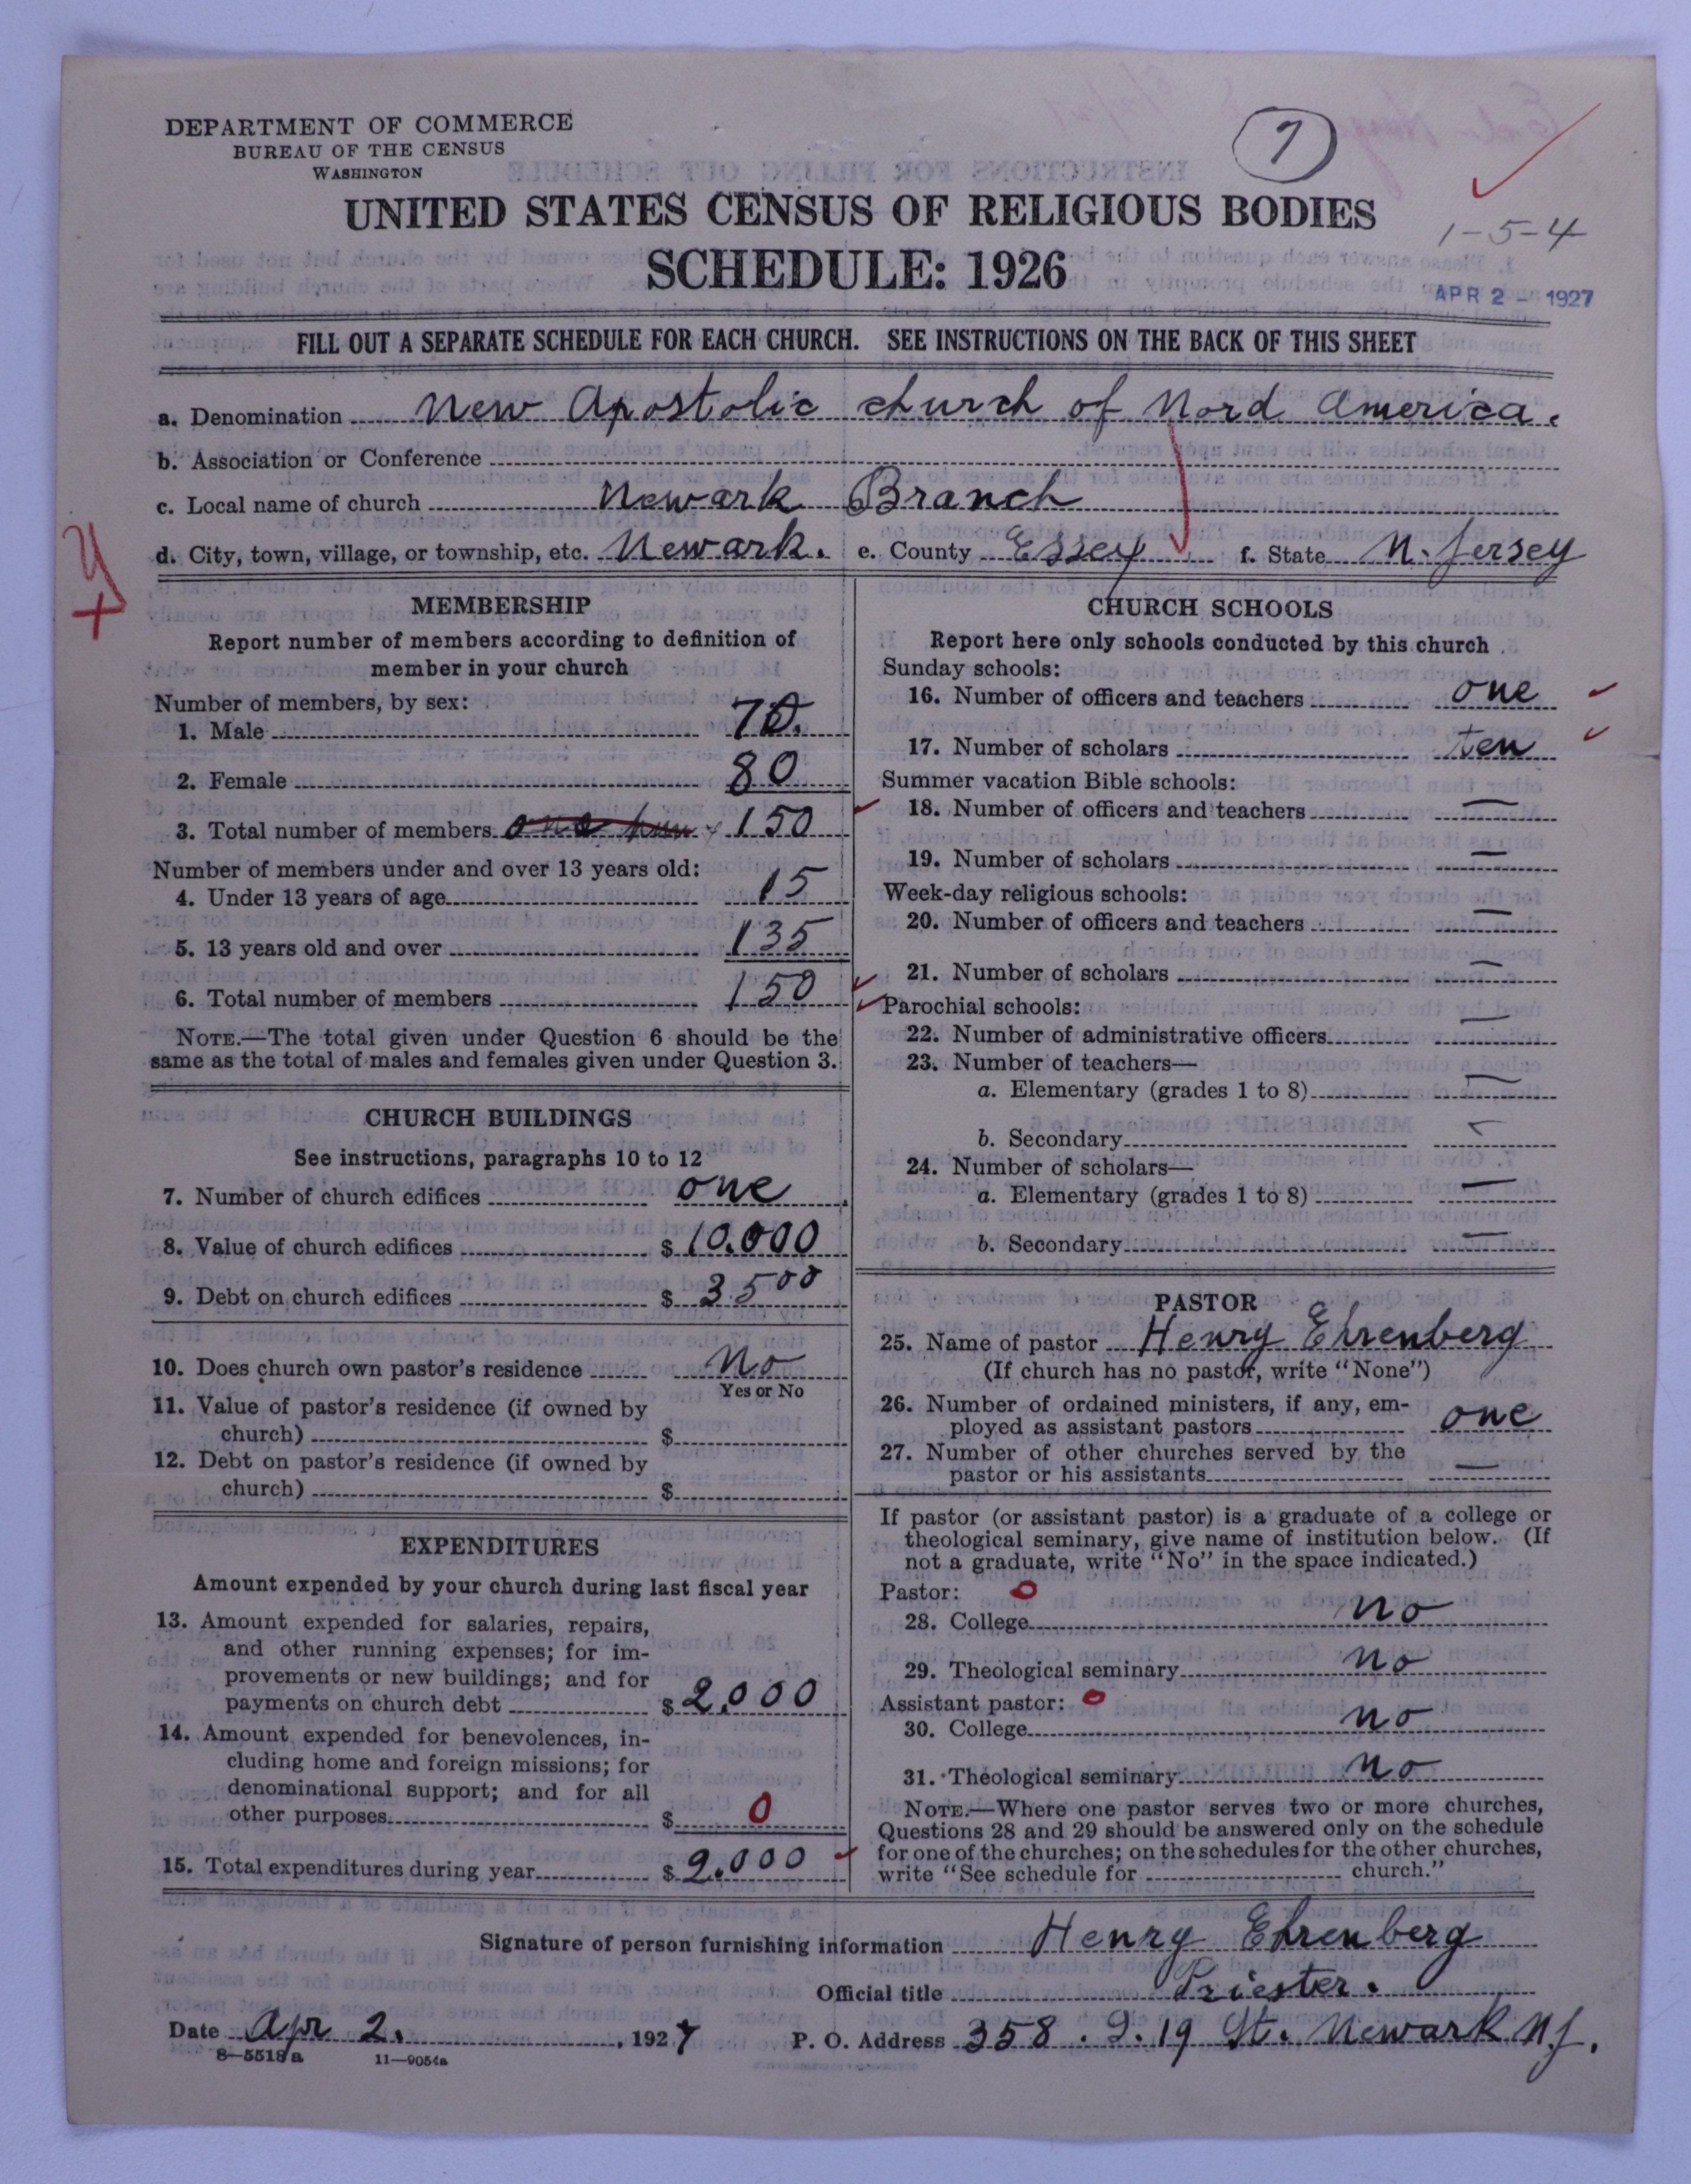 DEPARTMENT OF COMMERCE
BUREAU OF THE CENSUS
WASHINGTON
7
UNITED STATES CENSUS OF RELIGIOUS BODIES
SCHEDULE: 1926
1-5-4
APR 2 - 1927
FILL OUT A SEPARATE SCHEDULE FOR EACH CHURCH. SEE INSTRUCTIONS ON THE BACK OF THIS SHEET
a. Denomination New Apostolic church of Nord America.
b. Association or Conference
c. Local name of church Newark Branch
d. City, town, village, or township, etc. Newark. e. County Essex f. State N. Jersey
MEMBERSHIP
Report number of members according to definition of
member in your church
Number of members, by sex:
1. Male 70.
2. Female 80
3. Total number of members 150
Number of members under and over 13 years old:
4. Under 13 years of age 15
5. 13 years old and over 135
6. Total number of members 150
NOTE.—The total given under Question 6 should be the
same as the total of males and females given under Question 3.
CHURCH BUILDINGS
See instructions, paragraphs 10 to 12
7. Number of church edifices one
8. Value of church edifices $ 10.000
9. Debt on church edifices $ 3500
10. Does church own pastor's residence No
Yes or No
11. Value of pastor's residence (if owned by
church) $
12. Debt on pastor's residence (if owned by
church) $
EXPENDITURES
Amount expended by your church during last fiscal year
13. Amount expended for salaries, repairs,
and other running expenses; for im-
provements or new buildings; and for
payments on church debt $ 2.000
14. Amount expended for benevolences, in-
cluding home and foreign missions; for
denominational support; and for all
other purposes $ 0
15. Total expenditures during year $ 2.000
CHURCH SCHOOLS
Report here only schools conducted by this church
Sunday schools:
16. Number of officers and teachers one
17. Number of scholars ten
Summer vacation Bible schools:
18. Number of officers and teachers —
19. Number of scholars —
Week-day religious schools:
20. Number of officers and teachers —
21. Number of scholars —
Parochial schools:
22. Number of administrative officers —
23. Number of teachers—
a. Elementary (grades 1 to 8) —
b. Secondary —
24. Number of scholars—
a. Elementary (grades 1 to 8) —
b. Secondary —
PASTOR
25. Name of pastor Henry Ehrenberg
(If church has no pastor, write "None")
26. Number of ordained ministers, if any, em-
ployed as assistant pastors one
27. Number of other churches served by the
pastor or his assistants —
If pastor (or assistant pastor) is a graduate of a college or
theological seminary, give name of institution below. (If
not a graduate, write "No" in the space indicated.)
Pastor: 0
28. College no
29. Theological seminary no
Assistant pastor: 0
30. College no
31. Theological seminary no
NOTE.—Where one pastor serves two or more churches,
Questions 28 and 29 should be answered only on the schedule
for one of the churches; on the schedules for the other churches,
write "See schedule for church."
Signature of person furnishing information Henry Ehrenberg
Official title Priester.
Date Apr 2. , 1927 P. O. Address 358. S. 19 St. Newark N.J.
8—5518a 11—9054a